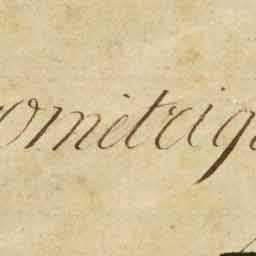 ométriqu